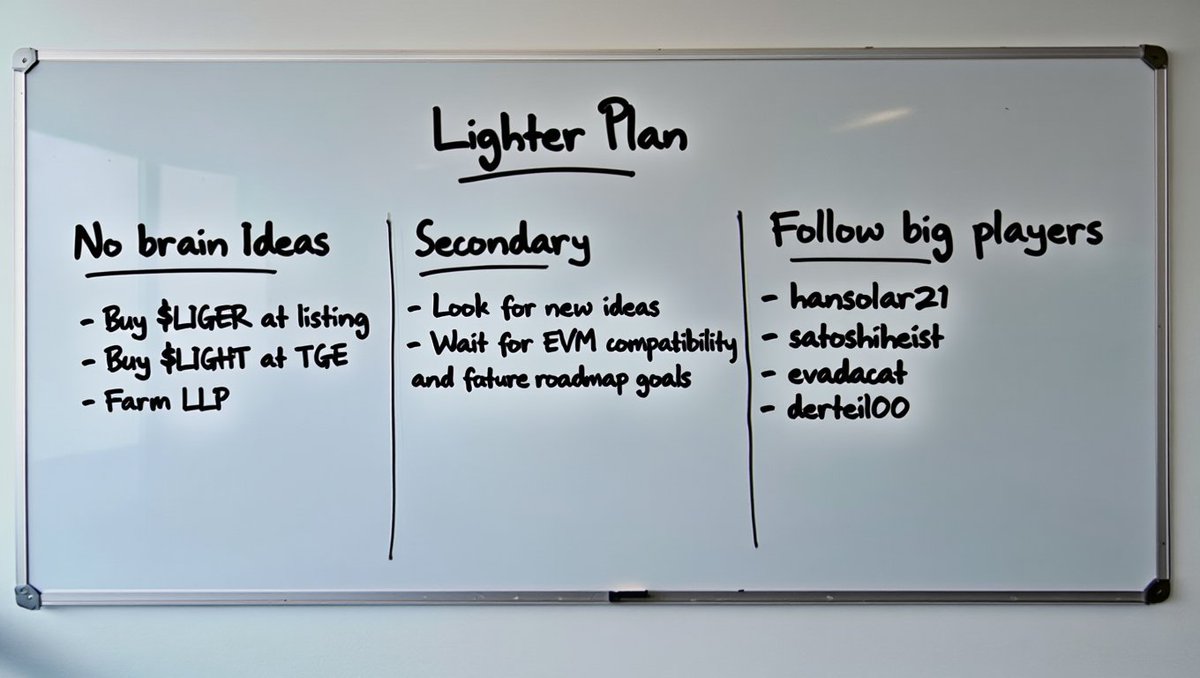 Lighter Plan
No brain Ideas
- Buy $LIGER at listing
- Buy $LIGHT at TGE
- Farm LLP
Secondary
- Look for new ideas
- Wait for EVM compatibility
and future roadmap goals
Follow big players
- hansolar21
- satoshiheist
- evadacat
- derteil00